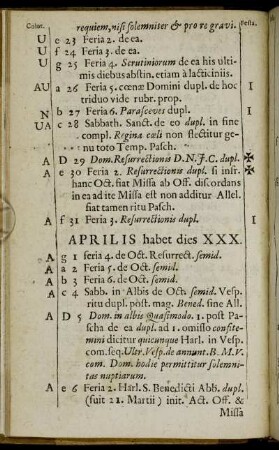 Color. requiem, nisi solemniter & pro re gravi. Festa.
U e 23 Feria 2. de ea.
U f 24 Feria 3. de ea.
U g 25 Feria 4. Scrutiniorum de ea his ulti-
mis diebus abstin. etiam à lacticiniis.
AU a 26 Feria 5. cœnæ Domini dupl. de hoc I
triduo vide rubr. prop.
N b 27 Feria 6. Parasceves dupl. I
UA c 28 Sabbath. Sanct. de eo dupl. in fine I
compl. Regina cœli non flectitur ge-
nu toto Temp. Pasch.
A D 29 Dom. Resurrectionis D.N.J.C. dupl. ✠
A e 30 Feria 2. Resurrectionis dupl. si infr. ✠
hanc Oct. fiat Missa ab Off. discordans
in ea ad ite Missa est non additur Allel.
fiat tamen ritu Pasch.
A f 31 Feria 3. Resurrectionis dupl. I
APRILIS habet dies XXX.
A g 1 feria 4. de Oct. Resurrect. semid.
A a 2 Feria 5. de Oct. semid.
A b 3 Feria 6. de Oct. semid.
A c 4 Sabb. in Albis de Oct. semid. Vesp.
ritu dupl. post. mag. Bened. sine All.
A D 5 Dom. in albis Quasimodo. 1. post Pa-
scha de ea dupl. ad 1. omisso confite-
mini dicitur quicunque Harl. in Vesp.
com. seq. Ultr. Vesp. de annunt. B. M. V.
com. Dom. hodie permittitur solemni-
tas nuptiarum.
A e 6 Feria 2. Harl. S. Benedicti Abb. dupl.
(fuit 21. Martii) init. Act. Off. &
Missa